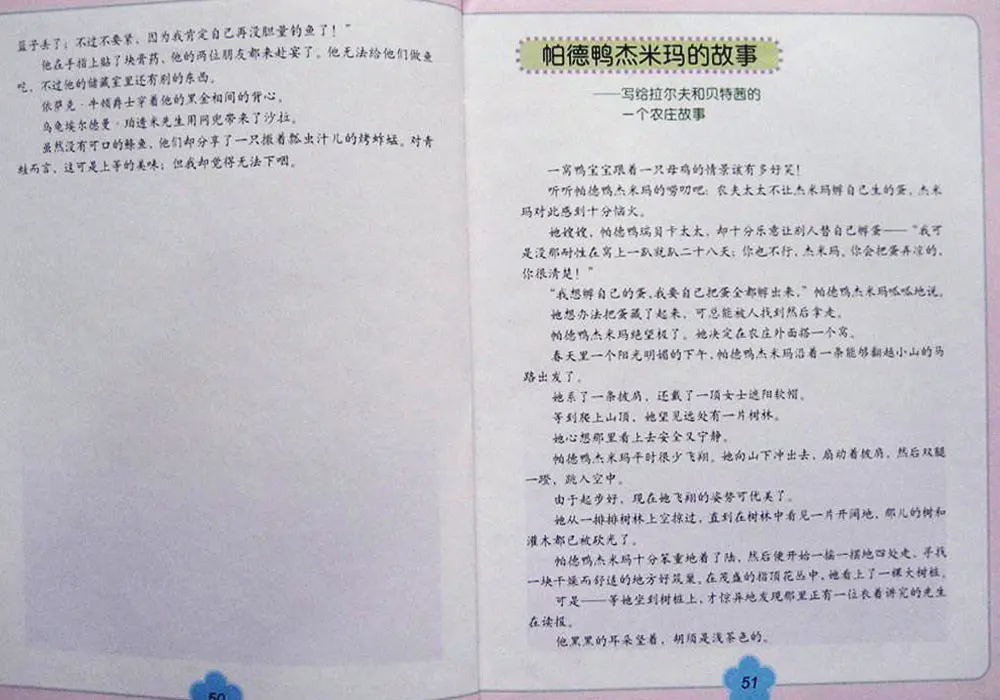 篮子丢了；不过不要紧，因为我肯定自己再没胆量钓鱼了！”
他在手指上贴了块膏药，他的两位朋友都来赴宴了。他无法给他们做鱼
吃，不过他的储藏室里还有别的东西。
依萨克·牛顿爵士穿着他的黑金相间的背心。
乌龟埃尔德曼·珀透米先生用网兜带来了沙拉。
虽然没有可口的鲦鱼，他们却分享了一只撒着瓢虫汁儿的烤蚱蜢。对青
蛙而言，这可是上等的美味；但我却觉得无法下咽。
50
帕德鸭杰米玛的故事
——写给拉尔夫和贝特茜的
一个农庄故事
一窝鸭宝宝跟着一只母鸡的情景该有多好笑！
听听帕德鸭杰米玛的唠叨吧：农夫太太不让杰米玛孵自己生的蛋，杰米
玛对此感到十分恼火。
她嫂嫂，帕德鸭瑞贝卡太太，却十分乐意让别人替自己孵蛋——“我可
是没那耐性在窝上一趴就趴二十八天；你也不行，杰米玛。你会把蛋弄凉的，
你很清楚！”
“我想孵自己的蛋，我要自己把蛋全都孵出来，”帕德鸭杰米玛呱呱地说。
她想办法把蛋藏了起来，可总能被人找到然后拿走。
帕德鸭杰米玛绝望极了。她决定在农庄外面搭一个窝。
春天里一个阳光明媚的下午，帕德鸭杰米玛沿着一条能够翻越小山的马
路出发了。
她系了一条披肩，还戴了一顶女士遮阳软帽。
等到爬上山顶，她望见远处有一片树林。
她心想那里看上去安全又宁静。
帕德鸭杰米玛平时很少飞翔。她向山下冲出去，扇动着披肩，然后双腿
一蹬，跳入空中。
由于起步好，现在她飞翔的姿势可优美了。
她从一排排树林上空掠过，直到在树林中看见一片开阔地，那儿的树和
灌木都已被砍光了。
帕德鸭杰米玛十分笨重地着了陆，然后便开始一摇一摆地四处走，寻找
一块干燥而舒适的地方好筑巢。在茂盛的指顶花丛中，她看上了一棵大树桩。
可是——等她坐到树桩上，才惊异地发现那里正有一位衣着讲究的先生
在读报。
他黑黑的耳朵竖着，胡须是浅茶色的。
51